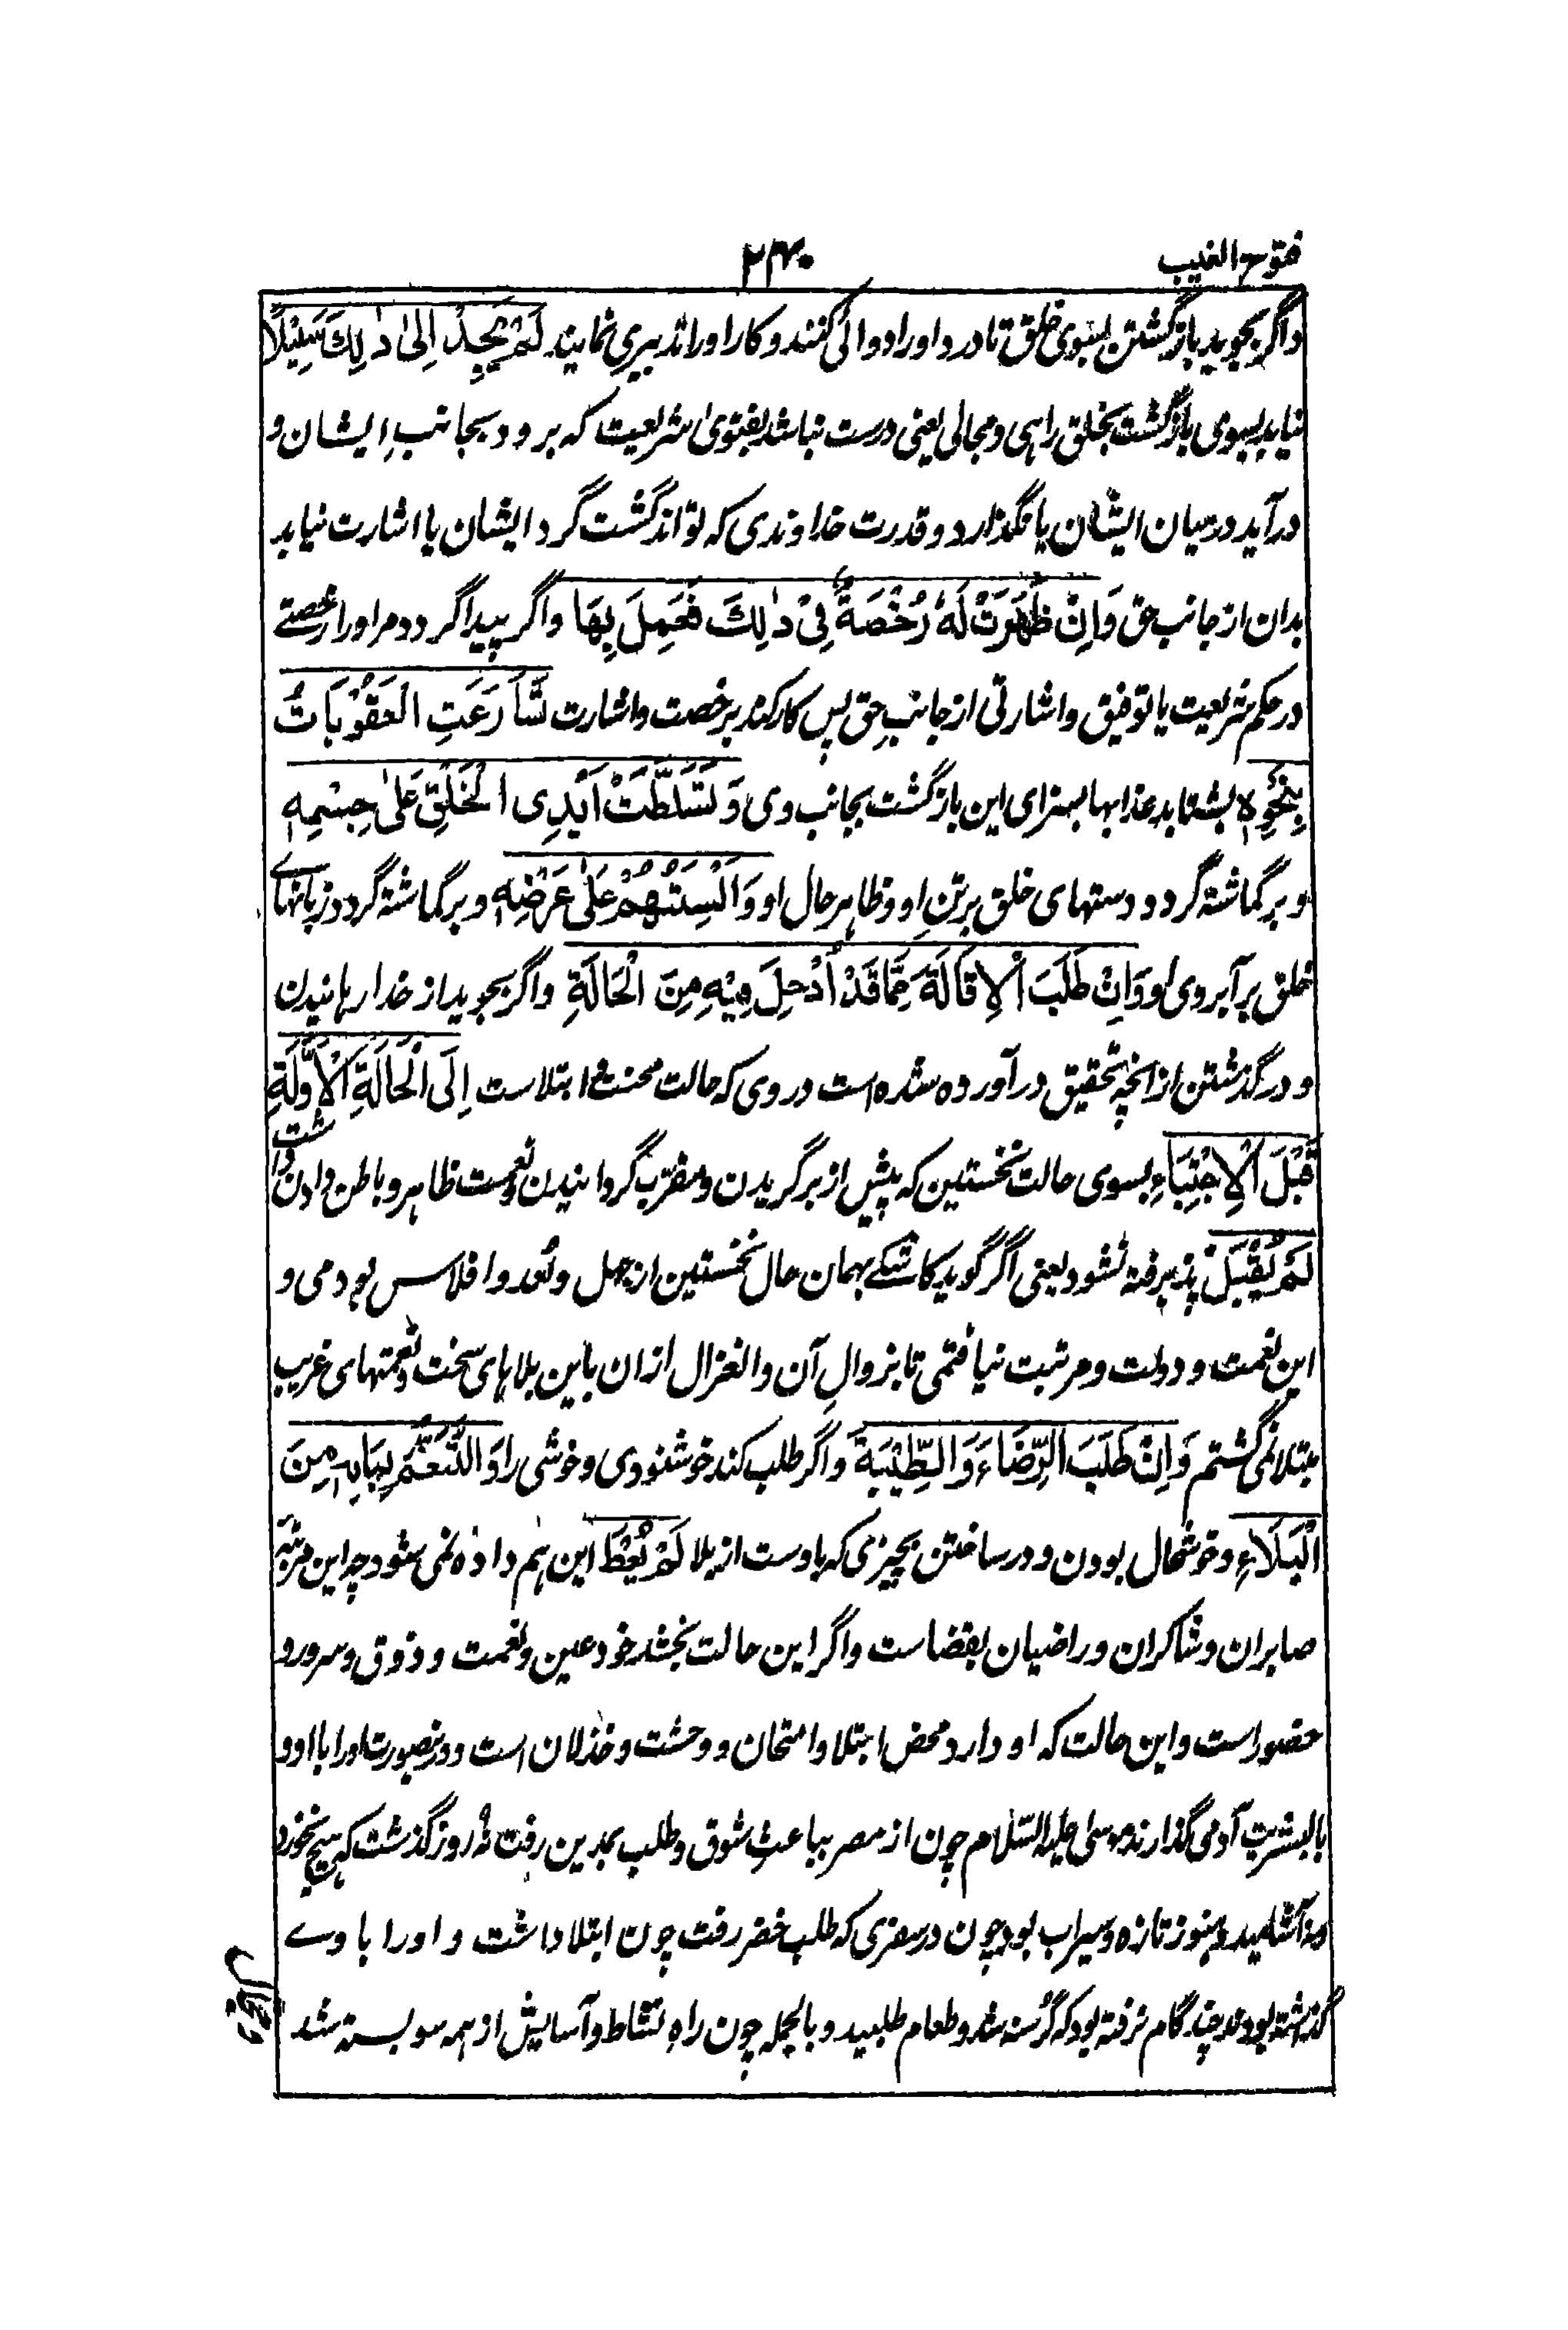 فتوح الغیب
۲۴۰
واگر بجوید بازگشتن بسوی خلق تا درد اورا دوائی کنند و کار اورا تدبیری نمایند لَمْ یَجِدْ اِلیٰ ذٰلِكَ سَبِیْلًا
نیابد بسوی بازگشت بخلق راهی و مجالی یعنی درست نباشد بفتویٰ شریعت که برود بجانبِ ایشان و
درآید درمیان ایشان یا نگذارد و قدرت خداوندی که تواند گشت گرد ایشان یا اشارت نیابد
بدان از جانب حق وَاِنْ ظَهَرَتْ لَهٗ رُخْصَةٌ فِیْ ذٰلِكَ فَعَمِلَ بِهَا واگر پیدا گردد مر اورا رخصتے
در حکم شریعت یا توفیق و اشارتی از جانبِ حق پس کار کند برخصت و اشارت تَسَارَعَتِ الْعَقُوْبَاتُ
بِنَحْوِهٖ بشتابد عذابها بسزای این بازگشت بجانب وی وَتَسَلَّطَتْ اَیْدِی الْخَلْقِ عَلیٰ جِسْمِهٖ
و برگماشته گردد دستهای خلق بر تنِ او و ظاهر حال او وَاَلْسِنَتُهُمْ عَلیٰ عَرَضِهٖ و برگماشته گردد زبانهاے
خلق بر آبروی او وَاِنْ طَلَبَ الْاِقَالَةَ مِمَّا قَدْ اُدْخِلَ فِیْهِ مِنَ الْحَالَةِ واگر بجوید از خدا رهانیدن
و درگذشتن از آنچه تحقیق درآورده شده است در وی که حالت محنت و ابتلاست اِلَی الْحَالَةِ الْاُوْلَةِ
قَبْلَ الْاِجْتِبَاءِ بسوی حالت نخستین که پیش از برگزیدن و مقرّب گردانیدن و نعمت ظاهر و باطن دادن داشت
لَمْ یُقْبَلْ پذیرفته نشود یعنی اگر گوید کاشکے بهمان حال نخستین از جهل و بُعد و افلاس بودمی و
این نعمت و دولت و مرتبت نیافتمی تا بزوالِ آن و انعزال ازان باین بلاهای سخت و نقمتهای غریب
مبتلا نمی گشتم وَاِنْ طَلَبَ الرِّضَاءَ وَالطِّیْبَةَ واگر طلب کند خوشنودی و خوشی را وَالتَّنَعُّمَ بِمَا بِهٖ مِنَ
الْبَلَاءِ و خوشحال بودن و درساختن بچیزی که باوست از بلا لَمْ یُعْطَ این هم داده نمی شود چه این مرتبه
صابران و شاکران و راضیان بقضاست واگر این حالت بخشد خود عین و نعمت و ذوق و سرور و
حضور است و این حالت که او دارد محض ابتلا و امتحان و وحشت و خذلان است و درینصورت اورا با او و
با بشریت آدمی گذارند موسیٰ علیه السّلام چون از مصر بباعثِ شوق و طلب بمدین رفت نُه روز گذشت که هیچ نخورد
و نه آشامید و هنوز تازه و سیراب بود چون در سفری که طلبِ خضر رفت چون ابتلا داشت و اورا با وے
گذاشته بودند چند گام نرفته بود که گرسنه شد و طعام طلبید و بالجمله چون راهِ نشاط و آسایش از همه سو بسته شد